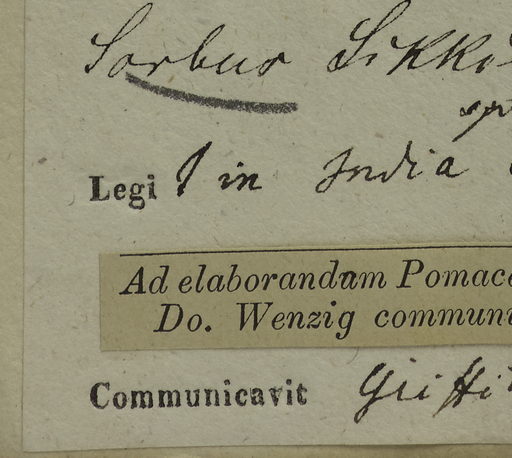 Sorbus Sikki
Legi in India
Ad elaborandam Pomace
Do. Wenzig communi
Communicavit Griffi